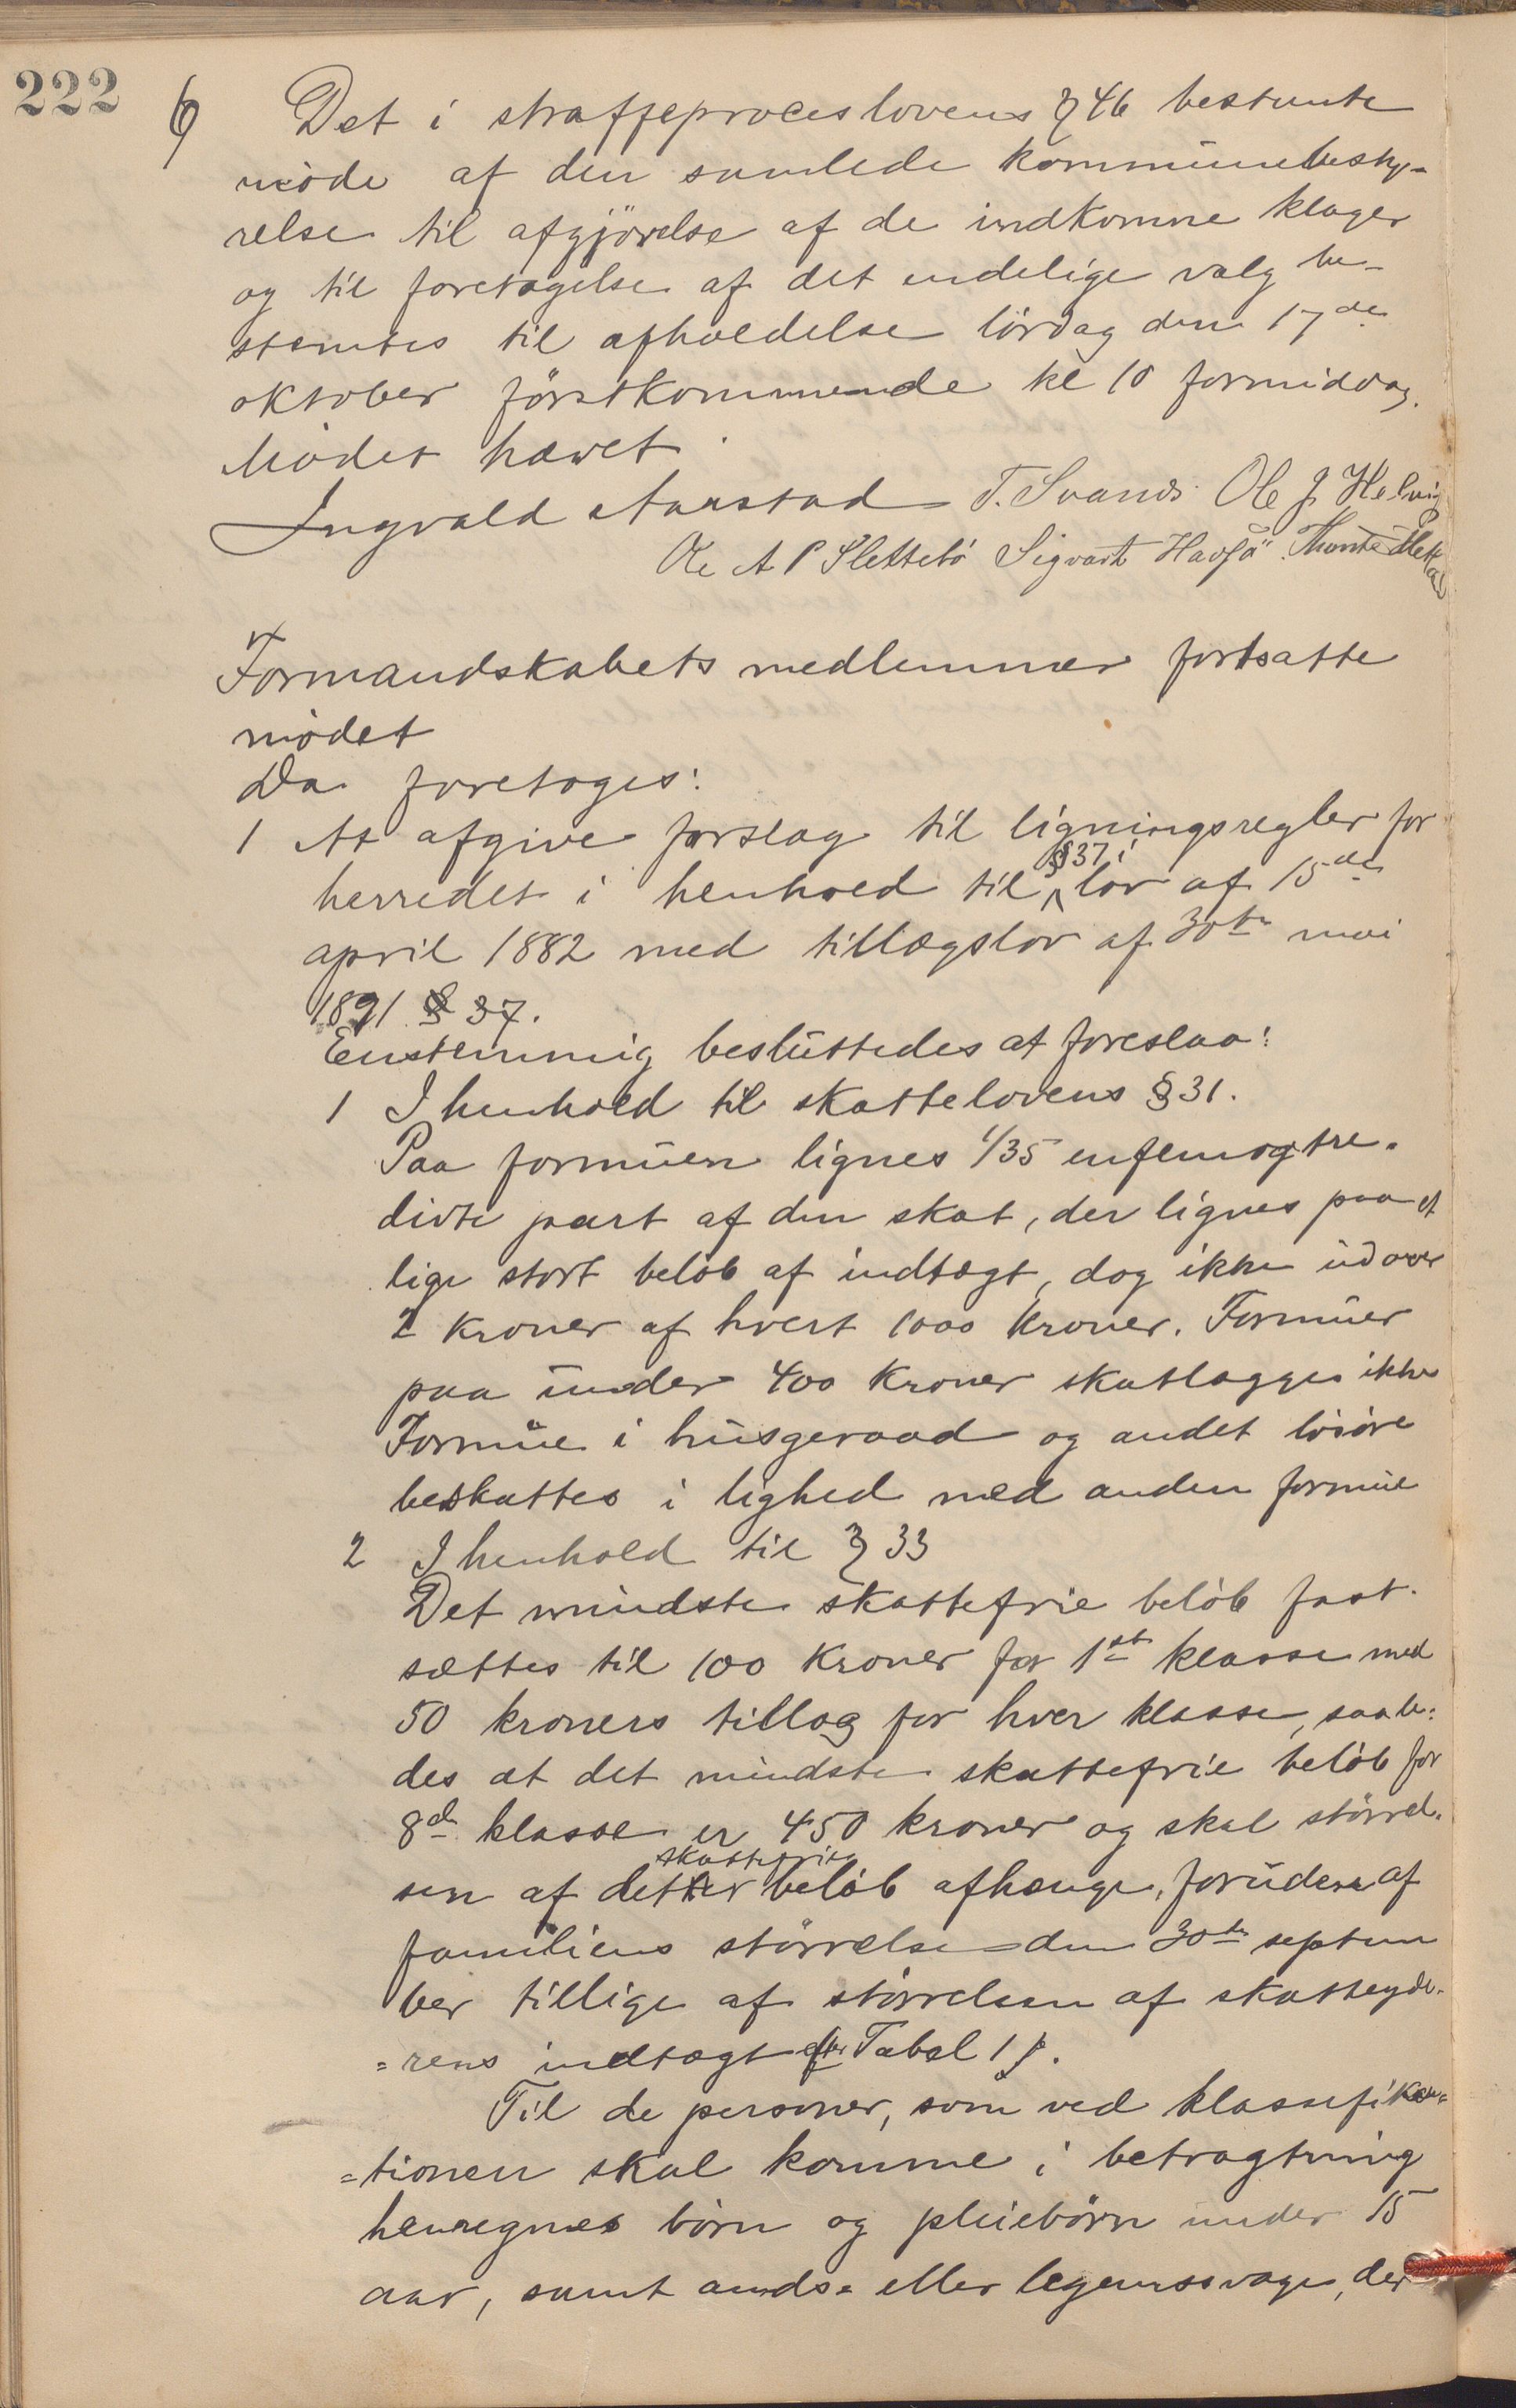 222
6) Det i straffeproceslovens § 46 bestemte
møde af den samlede kommunebesty-
relse til afgjörelse af de indkomne klager
og til foretagelse af det endelige valg be-
stemtes til afholdelse lördag den 17de
oktober förstkommende kl 10 formiddag.
Mødet hævet.
Ingvald Aarstad T. Svanes Ole J. Helvig
Ole A P Slettebö Sigvart Havsö
Formandskabets medlemmer fortsatte
mødet
Da foretoges:
1 At afgive forslag til ligningsregler for
herredet i henhold til § 37 i lov af 15de
april 1882 med tillægslov af 30te mai
1891 § 37.
Enstemmig besluttedes at foreslaa:
1 I henhold til skattelovens § 31.
Paa formuen lignes 1/35 enfemogtre-
divte part af den skat, der lignes paa et
lige stort beløb af indtægt, dog ikke udover
2 kroner af hvert 1000 kroner. Formuer
paa under 400 kroner skatlægges ikke
Formue i husgeraad og andet løsøre
beskattes i lighed med anden formue
2 I henhold til § 33
Det mindste skattefrie beløb fast-
sættes til 100 kroner for 1ste klasse med
50 kroners tillæg for hver klasse, saale-
des at det mindste skattefrie beløb for
8de klasse er 450 kroner og skal störrel-
sen af det skattefrie beløb afhænge, foruden af
familiens störrelse den 30te septem
ber tillige af størrelsen af skatteyde-
=rens indtægt efter Tabel 1.
Til de personer, som ved klassifika=
=tionen skal komme i betragtning
henregnes börn og pleiebörn under 15
aar, samt ands- eller legemssvage, der